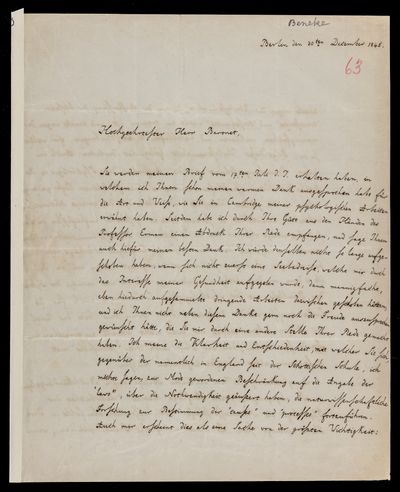 Beneke
Berlin den 20ten Dezember 1845.
63
Hochgeehrtester Herr Baronet,
Sie werden meinen Brief vom 17ten Juli d. J. erhalten haben, in
welchem ich Ihnen schon meinen warmen Dank ausgesprochen habe für
die Art und Weise, wie Sie in Cambridge meiner psychologischen Arbeiten
erwähnt haben. Seitdem habe ich durch Ihre Güte aus den Händen des
Professor Erman einen Abdruck Ihrer Rede empfangen, und sage Ihnen
auch hiefür meinen besten Dank. Ich würde denselben nicht so lange aufge-
schoben haben, wenn sich nicht zuerst eine Seebadereise, welche mir durch
das Interesse meiner Gesundheit aufgegeben wurde, dann mannigfache,
eben hiedurch aufgesammelte dringende Arbeiten dazwischen geschoben hätten,
und ich Ihnen nicht neben diesem Danke gern noch die Freude auszusprechen
gewünscht hätte, die Sie mir durch eine andere Stelle Ihrer Rede gemacht
haben. Ich meine die Klarheit und Entschiedenheit, mit welcher Sie sich,
gegenüber der namentlich in England seit der Schottischen Schule, ich
möchte sagen, zur Mode gewordenen Beschränkung auf die Angabe der
"laws", über die Nothwendigkeit geäussert haben, die naturwissenschaftliche
Forschung zur Bestimmung der "causes" und "processes" fortzuführen.
Auch mir erscheint dies als eine Sache von der größten Wichtigkeit: